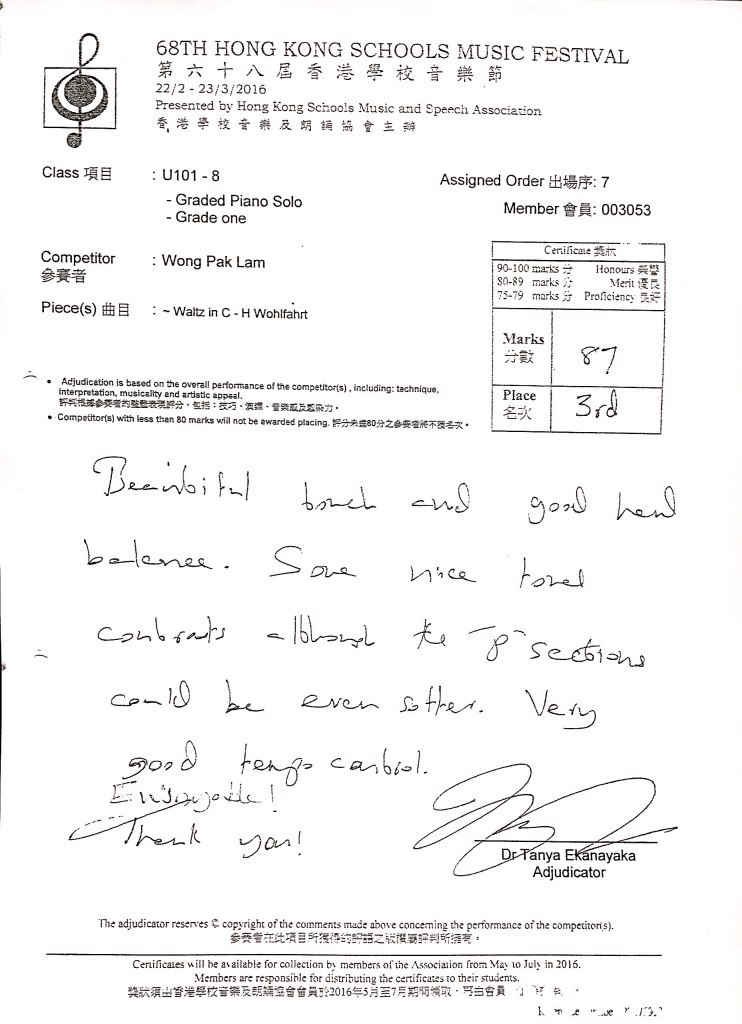 68TH HONG KONG SCHOOLS MUSIC FESTIVAL
第六十八屆香港學校音樂節
22/2 - 23/3/2016
Presented by Hong Kong Schools Music and Speech Association
香港學校音樂及朗誦協會主辦
Class 項目 : U101 - 8
- Graded Piano Solo
- Grade one
Assigned Order 出場序: 7
Member 會員: 003053
Competitor : Wong Pak Lam
參賽者
Piece(s) 曲目 : ~ Waltz in C - H Wohlfahrt
Certificate 獎狀
90-100 marks 分 Honours 榮譽
80-89 marks 分 Merit 優良
75-79 marks 分 Proficiency 良好
Marks 87
分數
Place 3rd
名次
• Adjudication is based on the overall performance of the competitor(s) , including: technique,
interpretation, musicality and artistic appeal.
評判根據參賽者的整體表現評分，包括：技巧、演繹、音樂感及感染力。
• Competitor(s) with less than 80 marks will not be awarded placing. 評分未達80分之參賽者將不獲名次。
Beautiful touch and good hand
balance. Some nice tonal
contrasts although the "p" sections
could be even softer. Very
good tempo control.
Enjoyable!
Thank you!
Dr Tanya Ekanayaka
Adjudicator
The adjudicator reserves © copyright of the comments made above concerning the performance of the competitor(s).
參賽者在此項目所獲得的評語之版權屬評判所擁有。
Certificates will be available for collection by members of the Association from May to July in 2016.
Members are responsible for distributing the certificates to their students.
獎狀須由香港學校音樂及朗誦協會會員於2016年5月至7月期間領取，再由會員